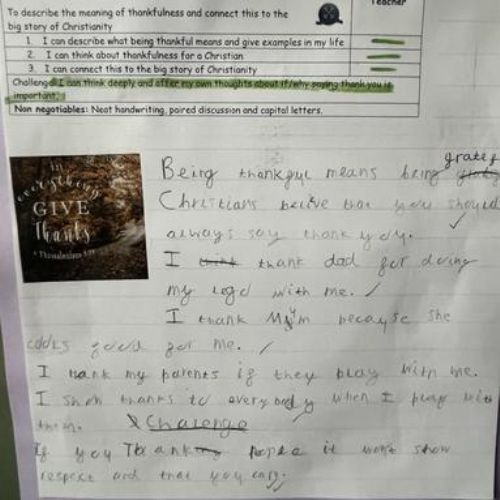 Teacher
To describe the meaning of thankfulness and connect this to the
big story of Christianity
1. I can describe what being thankful means and give examples in my life
2. I can think about thankfulness for a Christian
3. I can connect this to the big story of Christianity
Challenge: I can think deeply and offer my own thoughts about if/why saying thank you is
important.
Non negotiables: Neat handwriting, paired discussion and capital letters.
in
everything
GIVE
Thanks
1 Thessalonians
gratef
Being thankful means being
Christians belive that you should
always say thank you.
I think thank dad for doing
my lego with me.
I thank Mum because she
cooks food for me.
I thank my parents if they play with me.
I show thanks to everybody when I play with
them. Challenge
If you Thank people it wont show
respect and that you care.